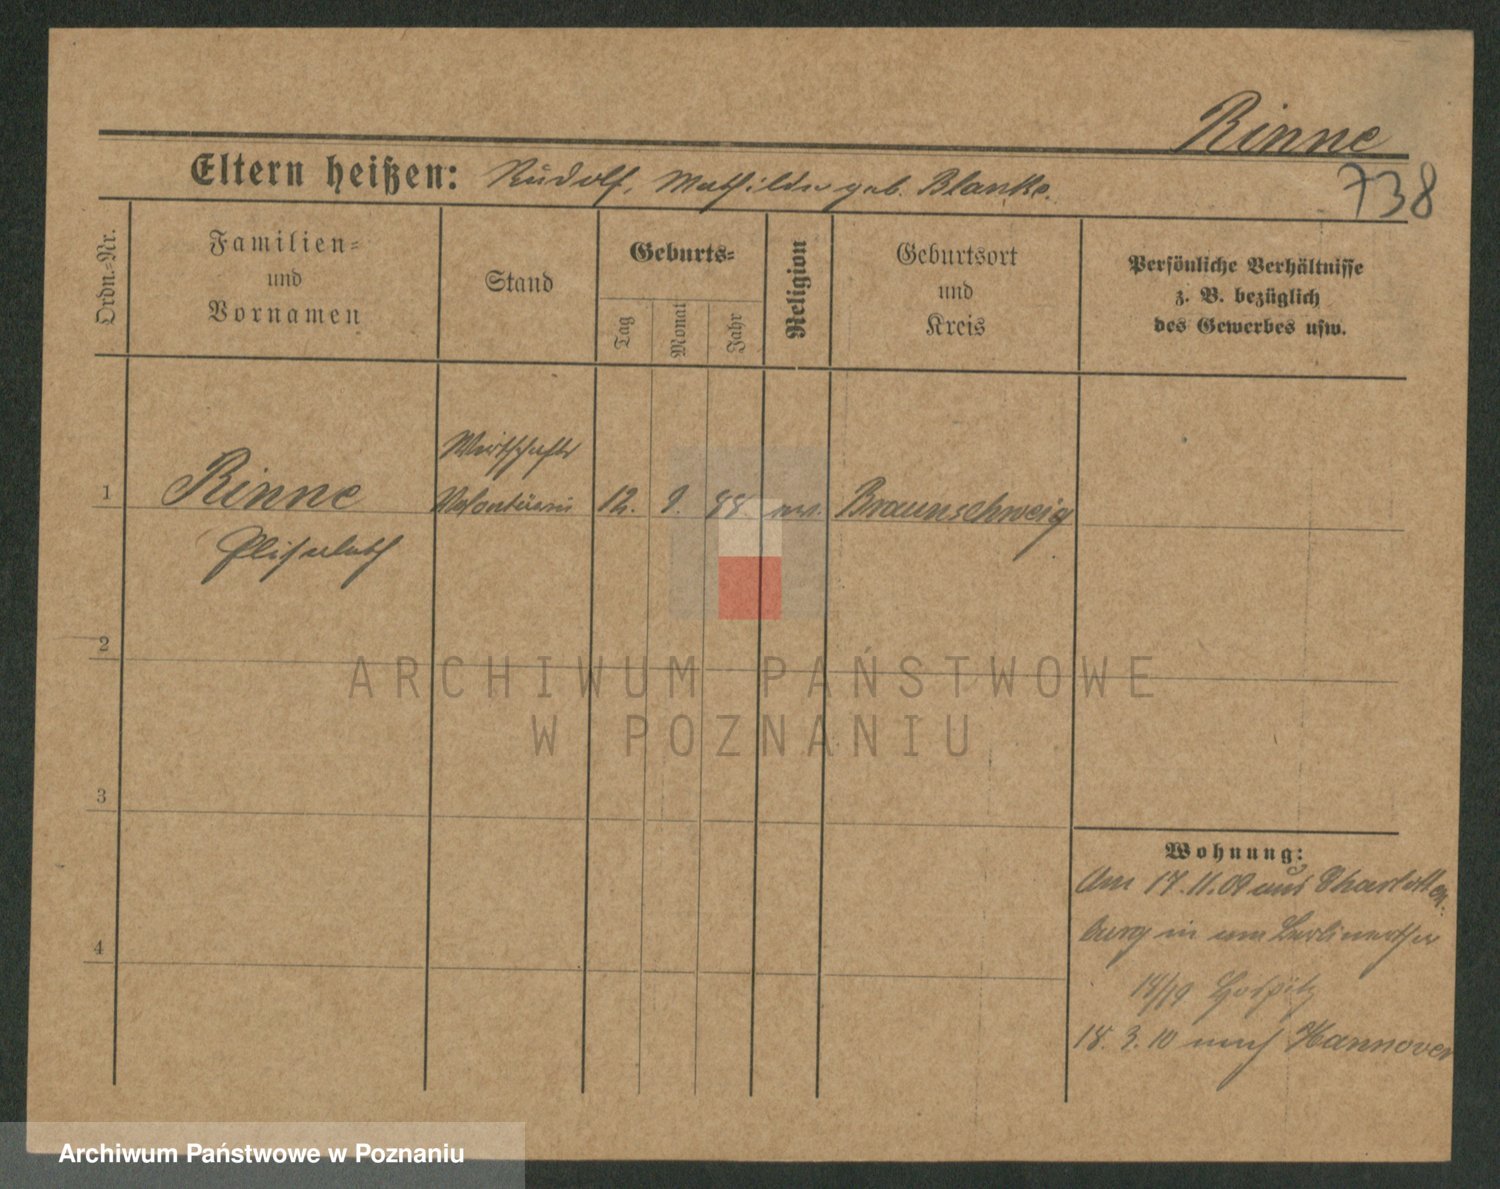 Rinne
738
Eltern heißen: Rudolf, Mathilde geb. Blanke.
Ordn.-Nr.
Familien-
und
Vornamen
Stand
Geburts-
Tag
Monat
Jahr
Religion
Geburtsort
und
Kreis
Persönliche Verhältnisse
z. B. bezüglich
des Gewerbes usw.
Wirtschafts
1 Rinne Volontärin 12. 9. 88 ev. Braunschweig
Elisabeth
2
3
4
Wohnung:
Am 17.11.09 aus Charlotten
burg in
18/19 Hospitz
18. 3. 10 nach Hannover
ARCHIWUM PAŃSTWOWE
W POZNANIU
Archiwum Państwowe w Poznaniu